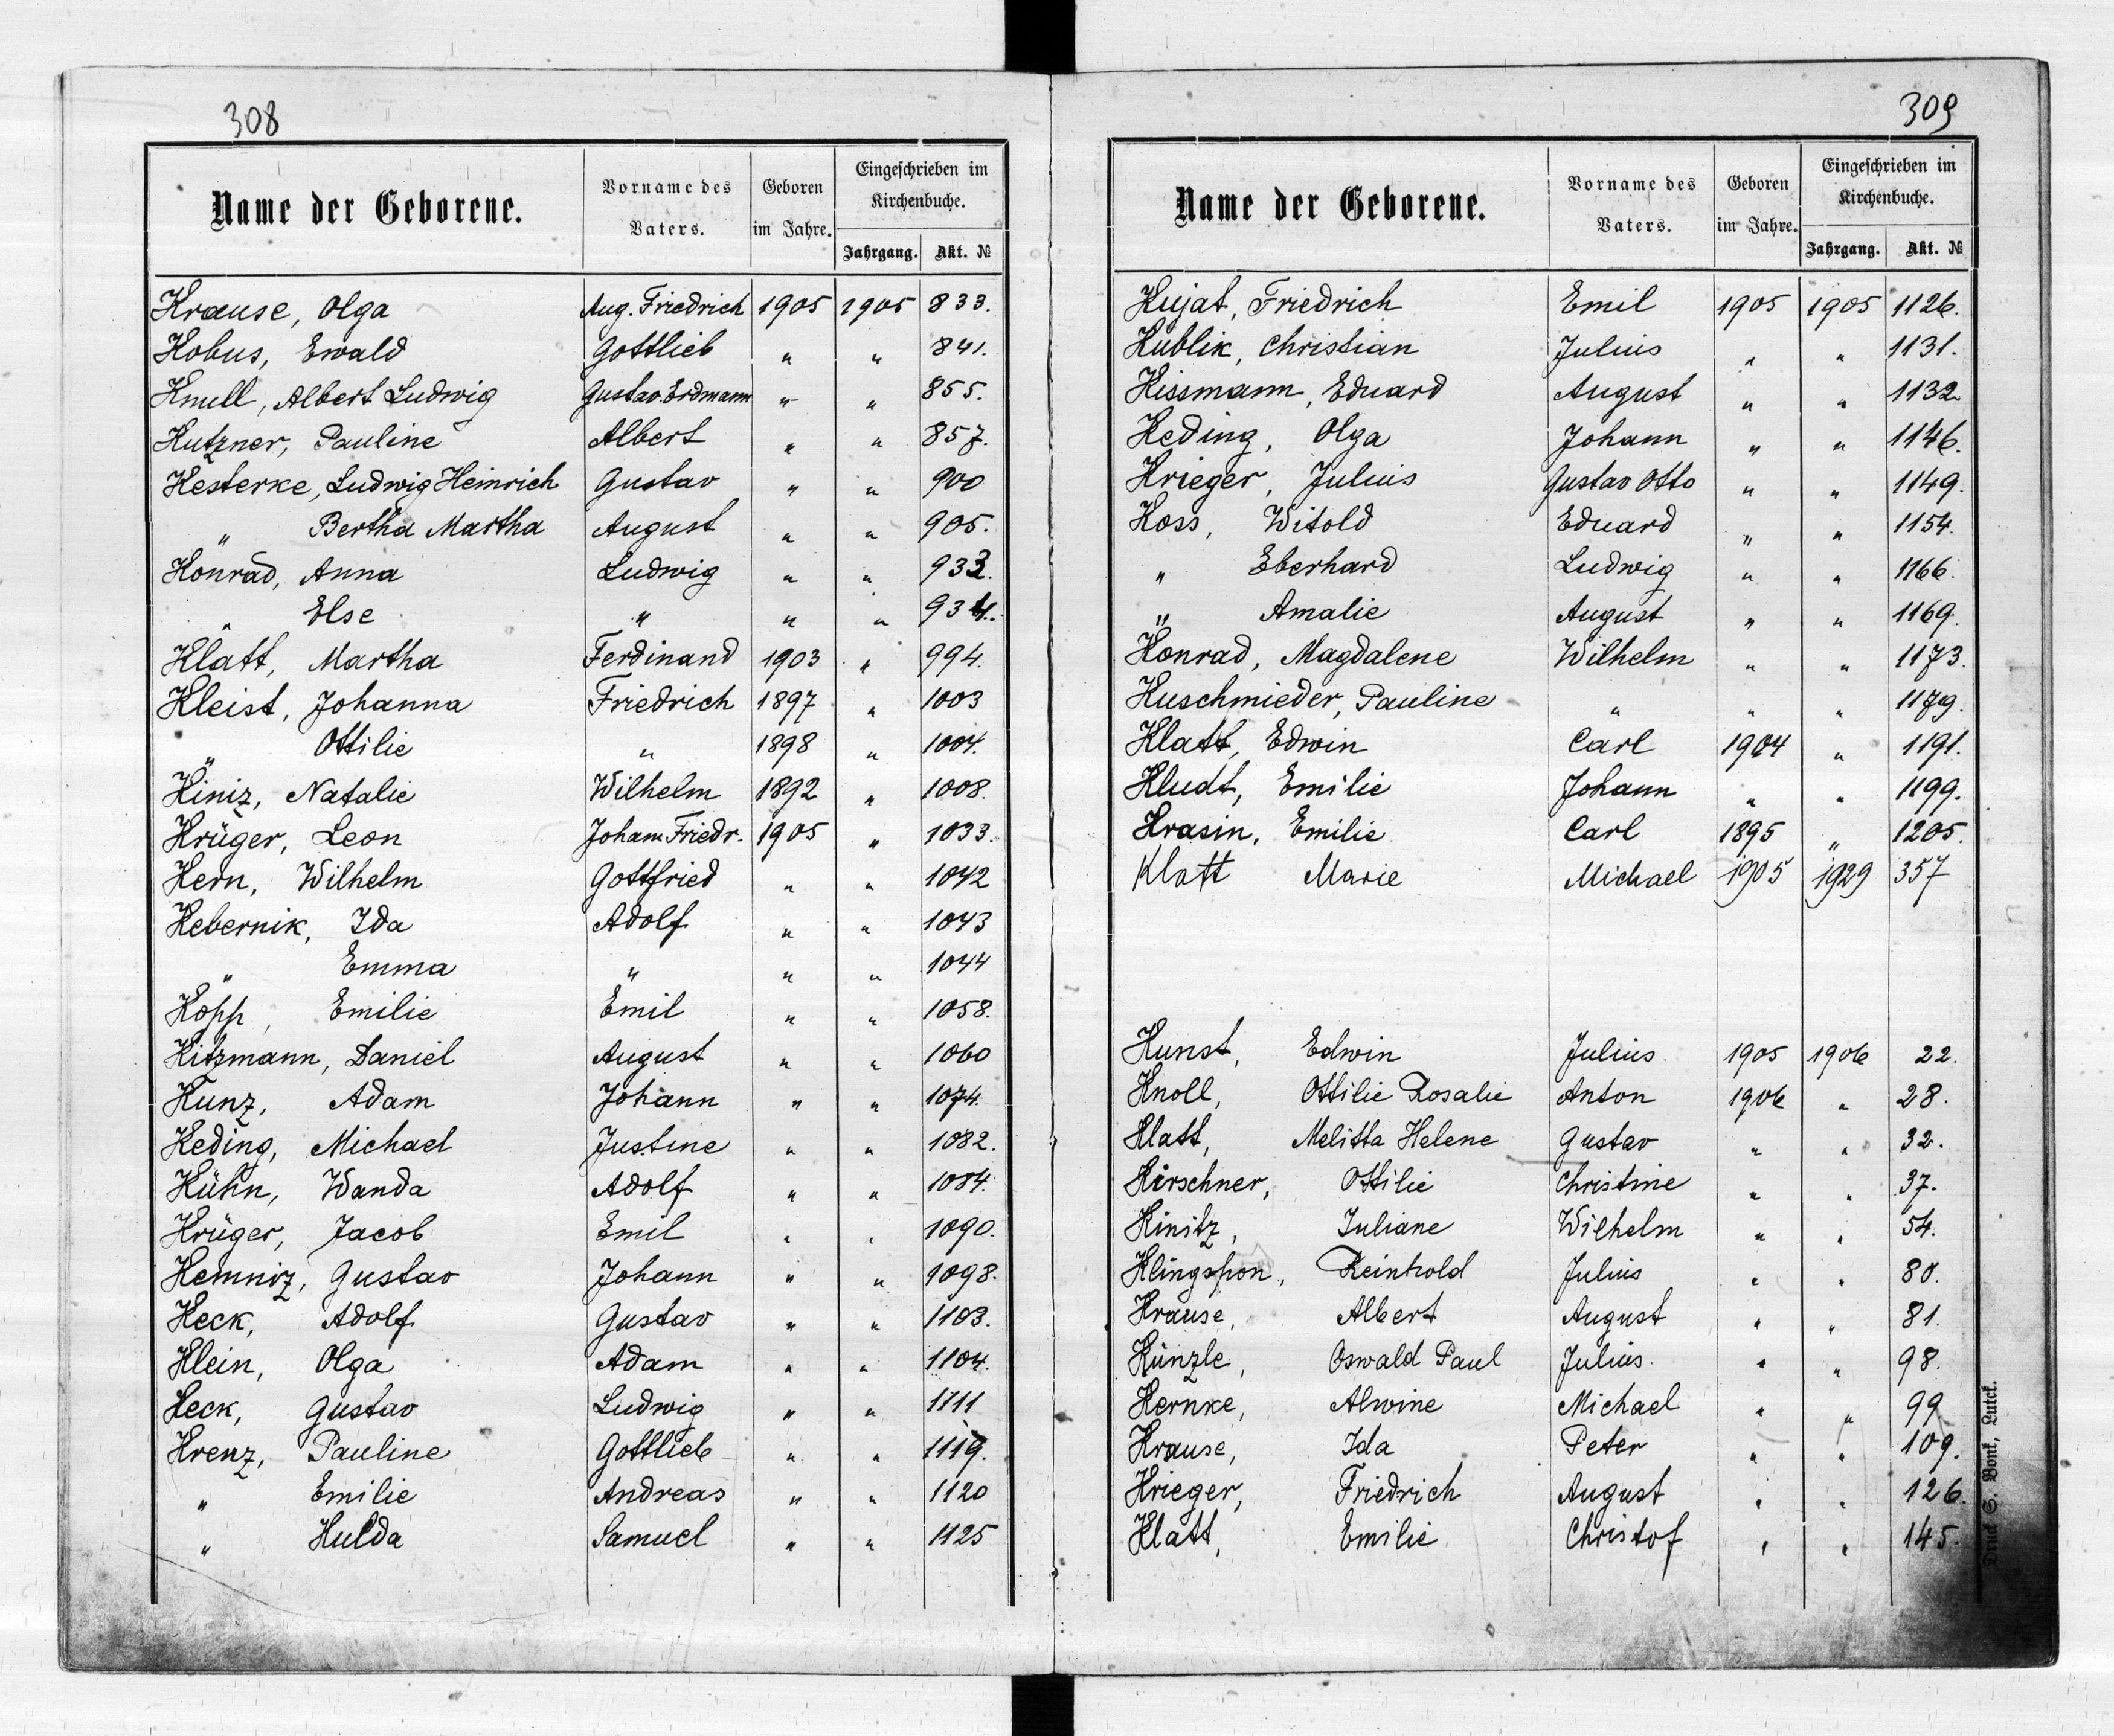 308
Name der Geborene. Vorname des Vaters. Geboren im Jahre. Eingeschrieben im Kirchenbuche. Jahrgang. Akt. №
Krause, Olga Aug. Friedrich 1905 1905 833.
Kobus, Ewald Gottlieb " " 841.
Knull, Albert Ludwig Gustav Erdmann " " 855.
Kutzner, Pauline Albert " " 857.
Kesterke, Ludwig Heinrich Gustav " " 900
" Bertha Martha August " " 905.
Konrad, Anna Ludwig " " 933.
" Else " " " 934.
Klatt, Martha Ferdinand 1903 " 994.
Kleist, Johanna Friedrich 1897 " 1003
" Ottilie " 1898 " 1004.
Kiniz, Natalie Wilhelm 1892 " 1008.
Krüger, Leon Johann Friedr. 1905 " 1033.
Kern, Wilhelm Gottfried " " 1042
Kebernik, Ida Adolf " " 1043
" Emma " " " 1044
Kopp, Emilie Emil " " 1058.
Kitzmann, Daniel August " " 1060
Kunz, Adam Johann " " 1074.
Keding, Michael Justine " " 1082.
Kühn, Wanda Adolf " " 1084.
Krüger, Jacob Emil " " 1090.
Kemniz, Gustav Johann " " 1098.
Keck, Adolf Gustav " " 1103.
Klein, Olga Adam " " 1104.
Keck, Gustav Ludwig " " 1111
Krenz, Pauline Gottlieb " " 1119.
" Emilie Andreas " " 1120
" Hulda Samuel " " 1125
309
Name der Geborene. Vorname des Vaters. Geboren im Jahre. Eingeschrieben im Kirchenbuche. Jahrgang. Akt. №
Kujat, Friedrich Emil 1905 1905 1126.
Kublik, Christian Julius " " 1131.
Kissmann, Eduard August " " 1132
Keding, Olga Johann " " 1146.
Krieger, Julius Gustav Otto " " 1149.
Koss, Witold Eduard " " 1154.
" Eberhard Ludwig " " 1166.
" Amalie August " " 1169.
Konrad, Magdalene Wilhelm " " 1173.
Kuschmieder, Pauline " " " 1179.
Klatt, Edwin Carl 1904 " 1191.
Kludt, Emilie Johann " " 1199.
Krasin, Emilie Carl 1895 " 1205.
Klatt Marie Michael 1905 1929 357
Kunst, Edwin Julius 1905 1906 22.
Knoll, Ottilie Rosalie Anton 1906 " 28.
Klatt, Melitta Helene Gustav " " 32.
Kirschner, Ottilie Christine " " 37.
Kinitz, Juliane Wilhelm " " 54.
Klingspon, Reinhold Julius " " 80.
Krause, Albert August " " 81.
Künzle, Oswald Paul Julius " " 98.
Kernke, Alwine Michael " " 99
Krause, Ida Peter " " 109.
Krieger, Friedrich August " " 126.
Klatt, Emilie Christof " " 145.
Druck S. Bonk, Luck.